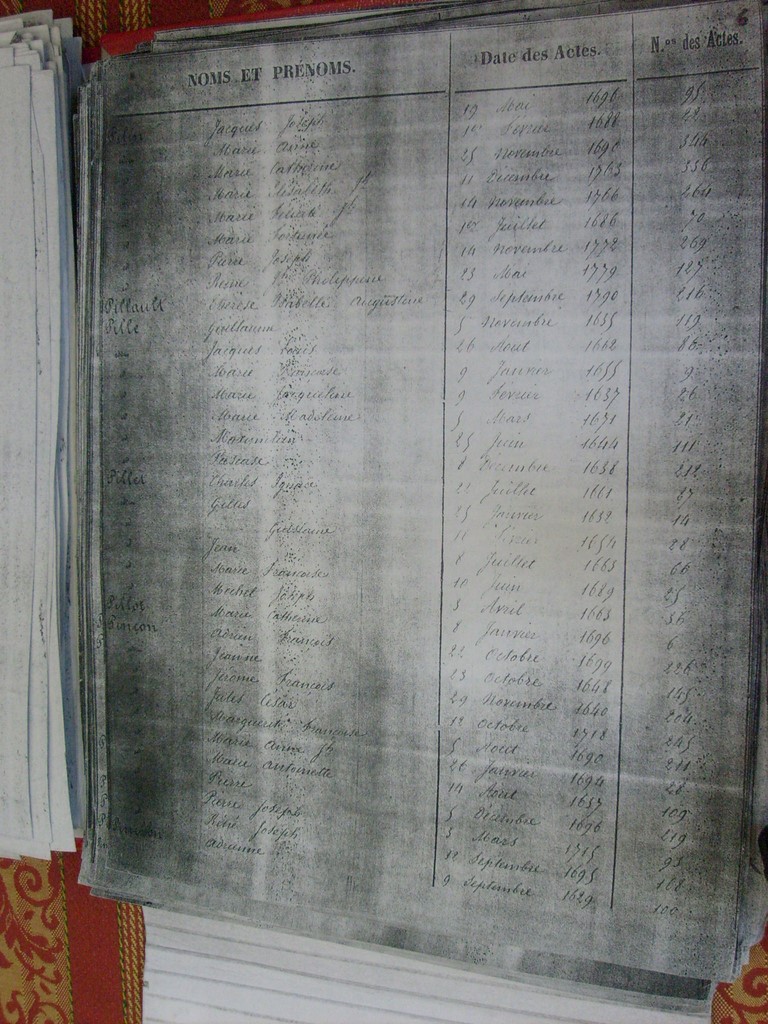 6
NOMS ET PRÉNOMS. Date des Actes. N.os des Actes.
Jacques Joseph 19 Mai 1696 95
Marie Anne 1er Fevrier 1688 22
Marie Catherine 25 Novembre 1690 344
Marie Elisabeth fs 11 Decembre 1763 336
Marie fs 14 Novembre 1766 264
Marie 1er Juillet 1686 70
Pierre Joseph 14 Novembre 1772 269
Philippine 23 Mai 1779 127
Pillault Therese Isabelle Augustine 29 Septembre 1790 216
Pille Guillaume 5 Novembre 1635 119
Jacques Louis 26 Aout 1662 86
Marie Francoise 9 Janvier 1655 9
Marie Jacqueline 9 Fevrier 1637 26
Marie Madeleine 5 Mars 1671 21
25 Juin 1644 111
8 Decembre 1638 212
Pillet Charles Ignace 22 Juillet 1661 27
Gilles 25 Janvier 1652 14
Guislaine 11 Fevrier 1654 28
Jean 8 Juillet 1665 66
Marie Francoise 10 Juin 1689 25
Michel Joseph 3 Avril 1663 36
Pillot Marie Catherine 8 Janvier 1696 6
Pincon Adrien Francois 22 Octobre 1699 226
Jeanne 23 Octobre 1648 145
Jerome Francois 29 Novembre 1640 204
Jules César 12 Octobre 1718 245
Marguerite Francoise 5 Aout 1690 211
Marie Anne fs 26 Janvier 1694 28
Marie Antoinette 14 Aout 1657 109
Pierre 5 Decembre 1696 219
Pierre Joseph 3 Mars 1715 93
René Joseph 12 Septembre 1695 168
Adrienne 9 Septembre 1629 100